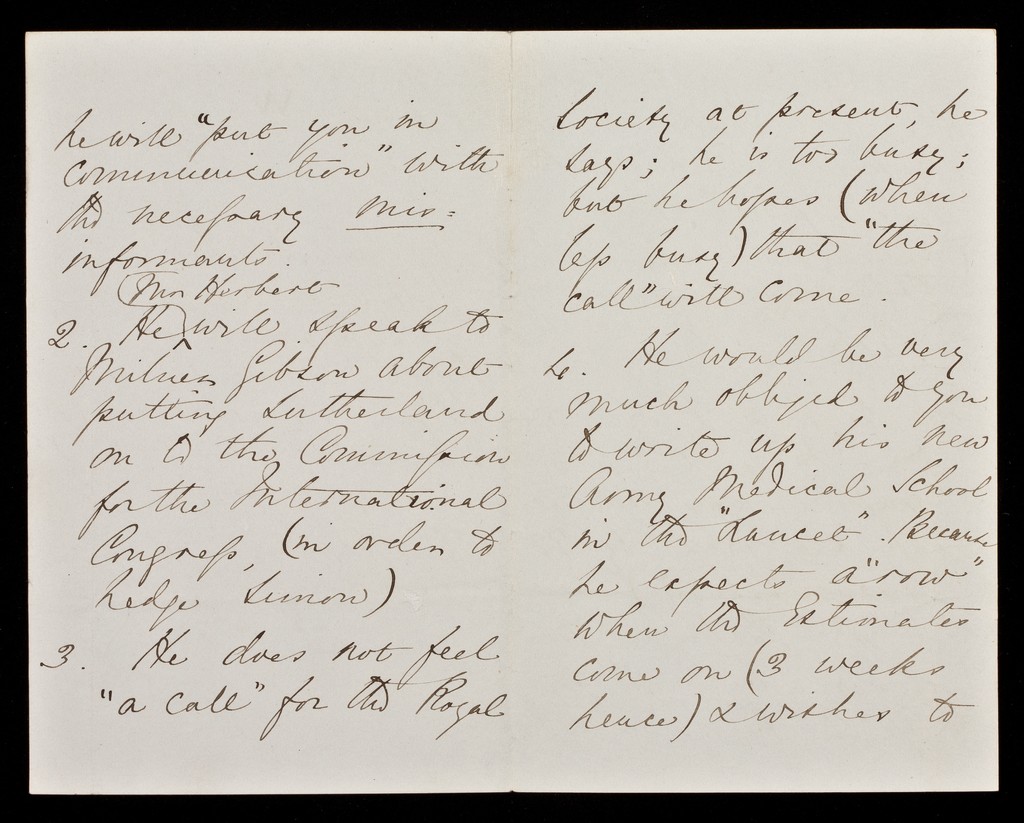 he will "put you in
communication" with
the necessary mis=
informants.
(Mr Herbert
2. He) will speak to
Milner Gibson about
putting Sutherland
on to the Commission
for the International
Congress, (in order to
hedge Simon)
3. He does not feel
"a call" for the Royal
Society at present, he
says; he is too busy;
but he hopes (when
less busy) that "the
call" will come.
4. He would be very
much obliged to you
to write up his new
Army Medical School
in the "Lancet". Because
he expects a "row"
when the Estimates
come on (3 weeks
hence) & wishes to